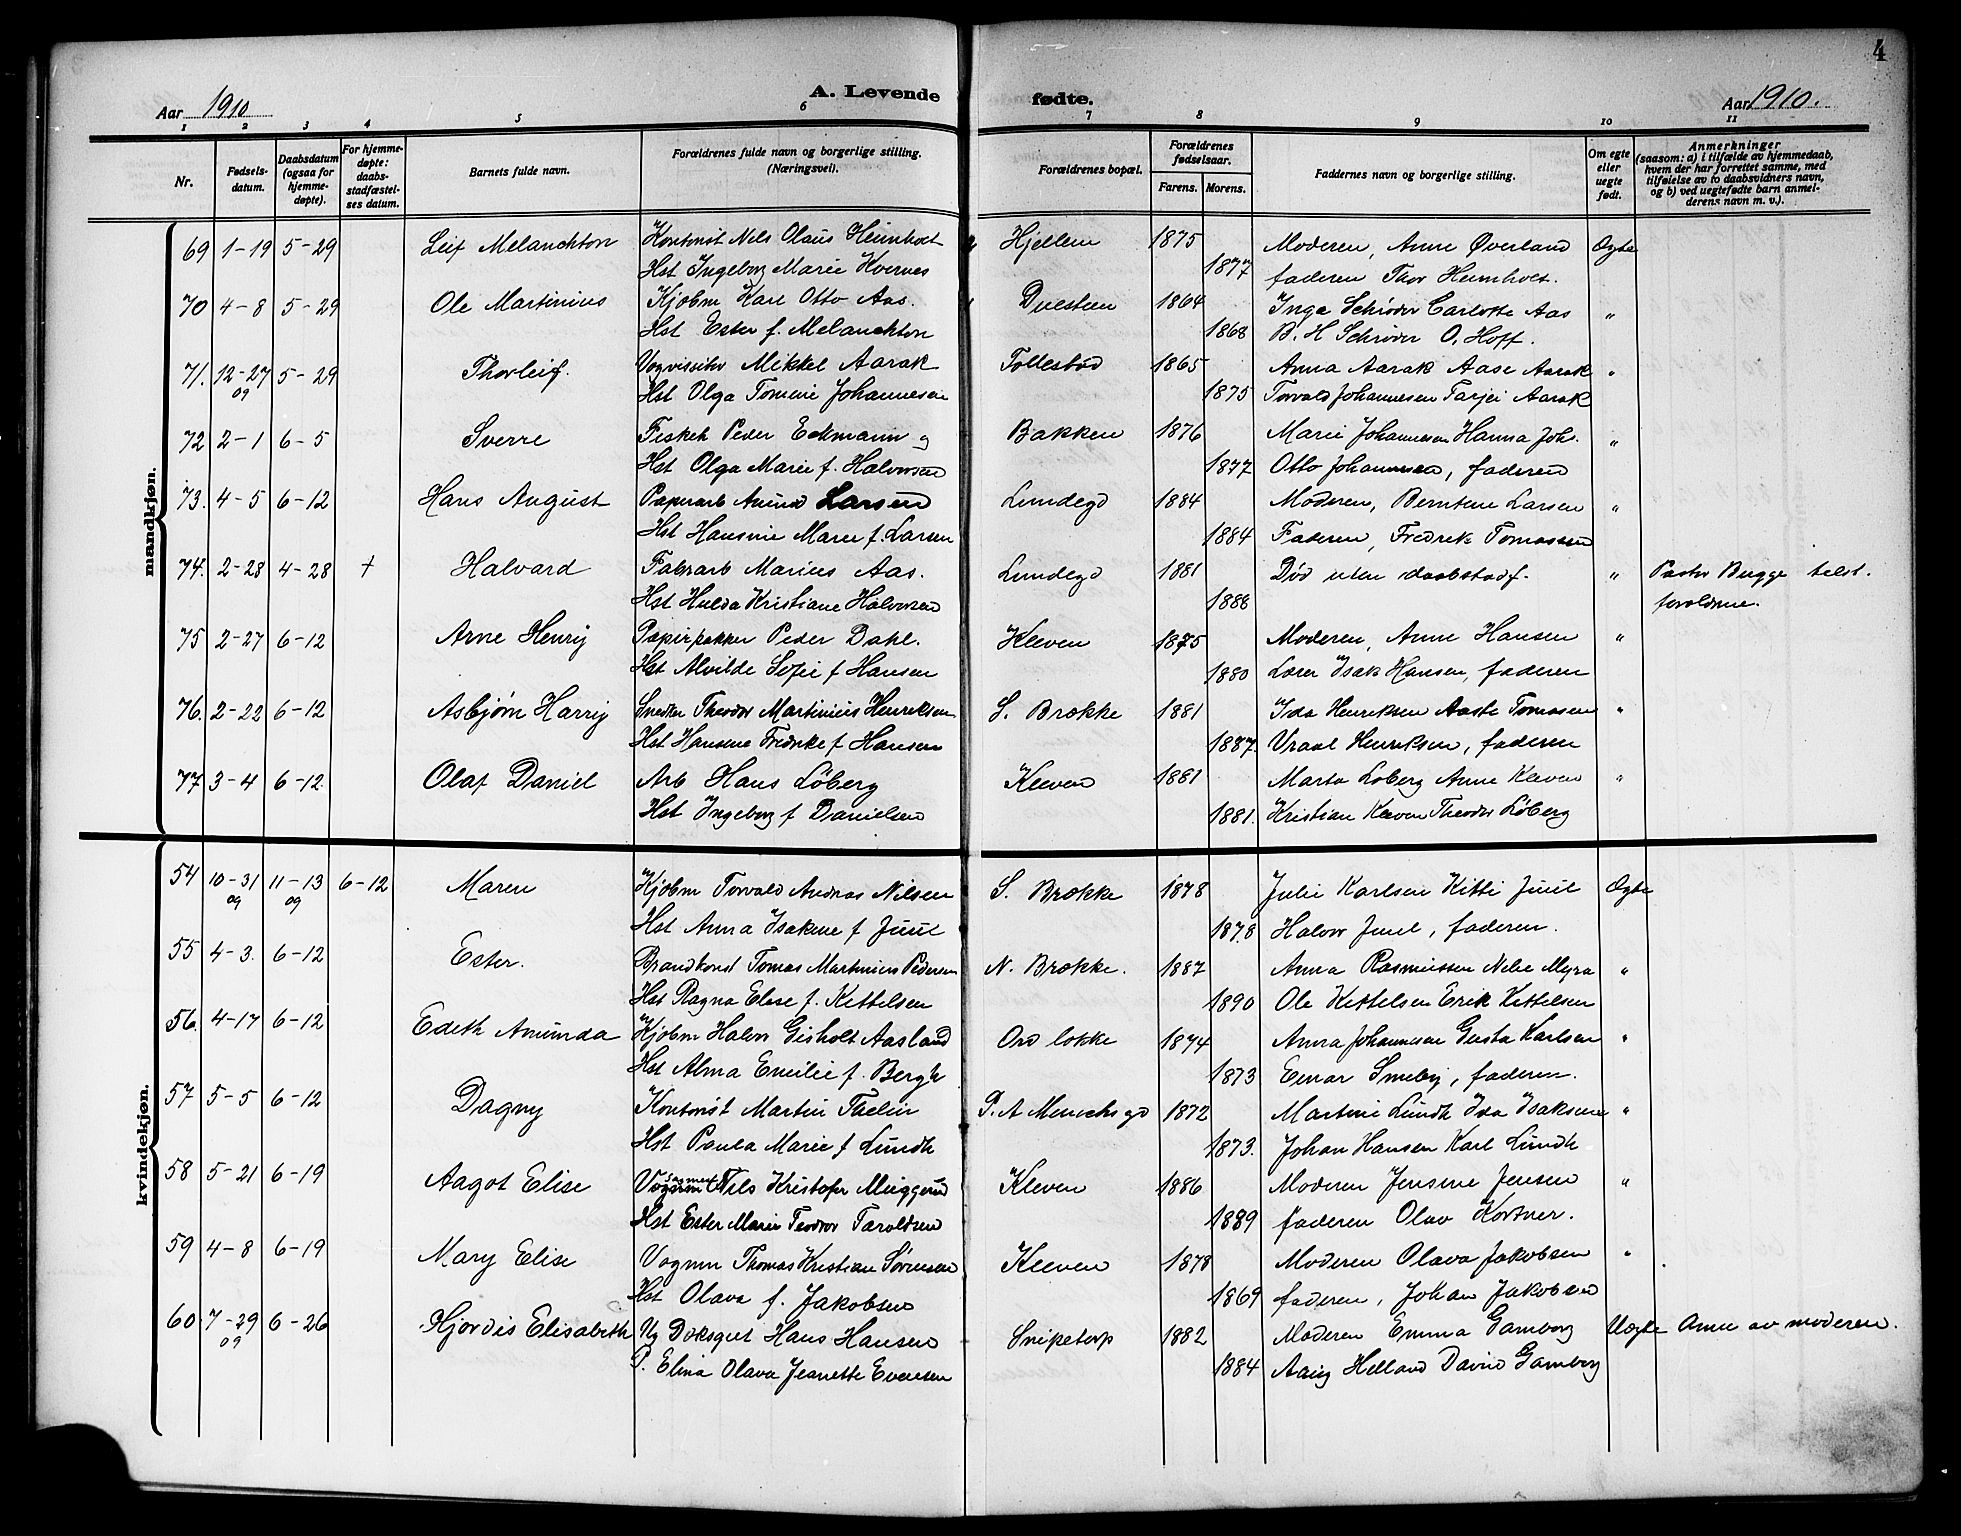 4
Aar 1910 A. Levende fødte. Aar 1910.
1 2 3 4 5 6 7 8 9 10 11
Nr. Fødsels-datum. Daabsdatum (ogsaa for hjemme-døpte). For hjemme-døpte: daabs-stadfæstel-ses datum. Barnets fulde navn. Forældrenes fulde navn og borgerlige stilling. (Næringsvei). Forældrenes bopæl. Forældrenes fødselsaar. Farens. Morens. Faddernes navn og borgerlige stilling. Om egte eller uegte født. Anmerkninger (saasom: a) i tilfælde av hjemmedaab, hvem der har forrettet samme, med tilføielse av to daabsvidners navn, og b) ved uegtefødte barn anmel-derens navn m. v.).
mandkjøn.
69 1-19 5-29 Leif Melanchton Kontorist Nils Olaus Heimholt Hjellen 1875 Moderen, Anne Øverland Ægte
Hst Ingeborg Marie Kvernes 1877 faderen Thor Heimholt.
70 4-8 5-29 Ole Martinius Kjøbm Karl Otto Aas. 1864 Inga Schrøder Carlotte Aas "
Hst Ester f. Melanchton 1868 B. H Schrøder O. Hoff.
71. 12-27 09 5-29 Thorleif. Mikkel Aarak Follestad 1865 Anna Aarak Aase Aarak "
Hst Olga Tomine Johannesen 1875 Torvald Johannesen Tarjei Aarak
72 2-1 6-5 Sverre Fiskeh Peder Eckmann og Bakken 1876 Marie Johannesen Hanna Joh. "
Hst Olga Marie f. Halvorsen 1877 Otto Johannesen, faderen
73. 4-5 6-12 Hans August Papirarb Amund Larsen Lundegd 1884 Moderen, Berntine Larsen "
Hst Hansine Marie f. Larsen 1884 Faderen, Fredrik Tomassen
74. 2-28 4-28 + Halvard Fabrarb Marius Aas. Lundegd 1881 Død uten daabstadf. " Pastor Bugge tilst.
Hst Hulda Kristiane Halvorsen 1888 foreldrene.
75 2-27 6-12 Arne Henry Papirpakker Peder Dahl. Kleven 1875 Moderen, Anne Hansen "
Hst Alvilde Sofie f Hansen 1880 Lærer Isak Hansen, faderen
76. 2-22 6-12 Asbjørn Harry Snedker Theodor Martinius Henriksen S. Brække 1881 Ida Henriksen Aaste Tomasen "
Hst Hansene Fredrike f Hansen 1887. Vraal Henriksen, faderen
77 3-4 6-12. Olaf Daniel Arb Hans Löberg Kleven 1881 Marta Loberg Anne Kleven "
Hst Ingeborg f Danielsen 1881. Kristian Kleven Theodor Löberg
kvindekjøn.
54 10-31 09 11-13 09 6-12 Maren Kjobm Torvald Andreas Nilsen S. Brække 1878 Julie Karlsen Kitti Juul Ægte
Hst Anna Isakine f Juul 1878 Halvor Juul, faderen.
55 4-3. 6-12 Ester. Brandkonst Tomas Martinius Pedersen N. Brække. 1887 Anna Rasmussen Nelie Myra "
Hst Ragna Elise f. Kittelsen 1890 Ole Kittelsen Erik Kittelsen
56. 4-17 6-12 Edith Amunda Kjøbm Halvor Gisholt Aasland løkke 1874 Anna Johannesen Gusta Karlsen "
Hst Alma Emilie f. Bergh 1873 Einar Smeby, faderen.
57 5-5 6-12 Dagny Kontorist Martin Thelin P. A Munchs gd 1872 Martine Lundh Ida Isaksen "
Hst Paula Marie f Lundh 1873. Johan Hansen Karl Lundh
58 5-21 6-19 Aagot Elise Vognm Nils Kristofer Muggerud Kleven 1886 Moderen Jensine Jensen "
Hst Ester Marie Teodor Taraldsen 1889 faderen Olav Kortner.
59 4-8 6-19 Mary Elise Vognm Thomas Kristian Sørensen Kleven 1878 Moderen Olava Jakobsen "
Hst Olava f. Jakobsen 1869 faderen, Johan Jakobsen
60 7-29 09 6-26 Hjørdis Elisabeth Ug Doksgut Hans Hansen Snipetorp 1882 Moderen Emma Gamborg Uægte Anm av moderen.
P. Elina Olava Jeanette Evensen 1884 Aasig Helland David Gamborg